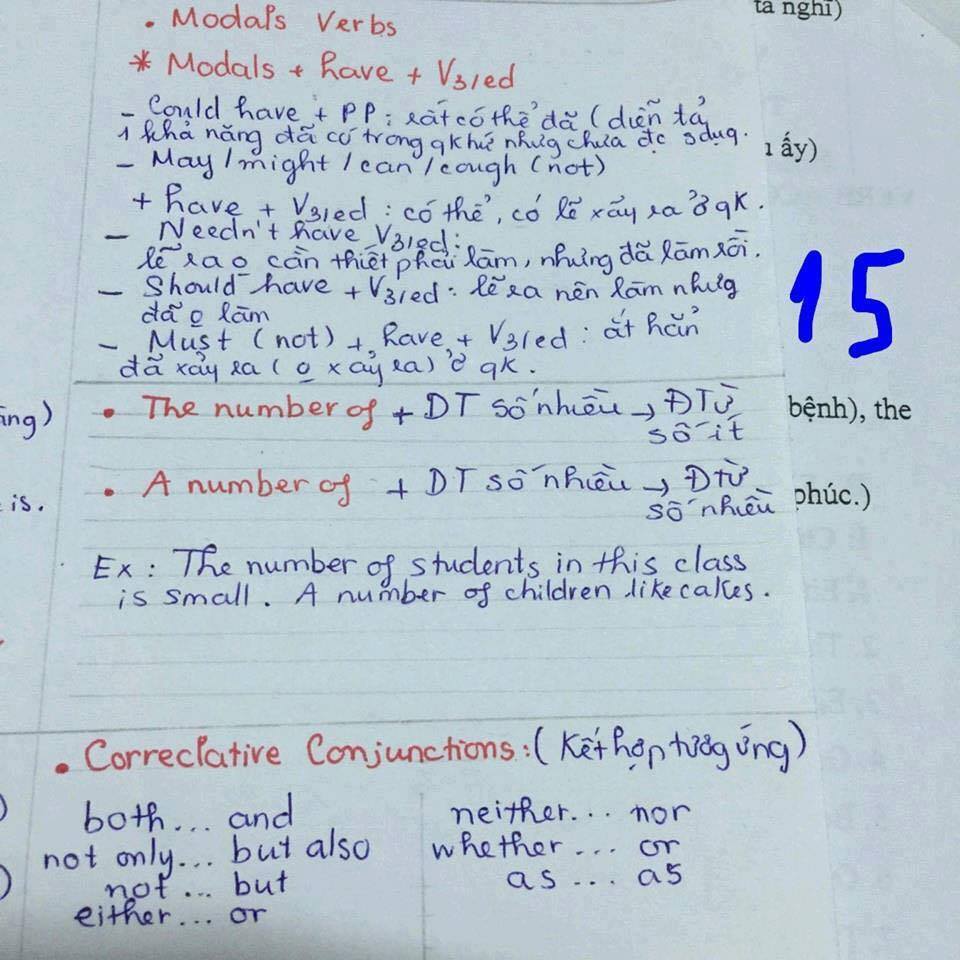 tả nghĩ)
• Modals Verbs
* Modals + have + V3/ed
- Could have + PP: rất có thể đã (diễn tả
1 khả năng đã có trong qkhứ nhưg chưa đc sdụg.
ấy)
- May/might/can/cough (not)
+ have + V3/ed: có thể, có lẽ xảy ra ở qk.
- Needn't have V3/ed:
lẽ ra o cần thiết phải làm, nhưng đã làm rồi.
- Should have + V3/ed: lẽ ra nên làm nhưg
đã o làm
15
- Must (not) + have + V3/ed: ắt hẳn
đã xảy ra (o xảy ra) ở qk.
ăng)
• The number of + DT số nhiều → ĐTừ
số ít
bệnh), the
• A number of + DT số nhiều → Đtừ
số nhiều
is.
phúc.)
Ex: The number of students in this class
is small. A number of children like cakes.
• Correclative Conjunctions: (Kết hợp tươg ứng)
both... and
not only... but also
not... but
either... or
neither... nor
whether... or
as... as